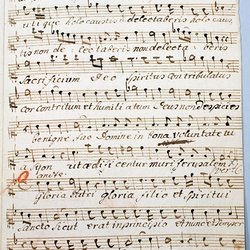 utique holocaustis delectaberis holocaus
tis non delectaberis non delecta beris
Sacrificium Deo Spiritus contribulatus
Cor contritum et humiliatum Deus non despicies
benigne fac Domine in bona voluntate tu
Syon ut adificentur muri Jerusalem
Gloria Patri gloria filio et Spiritui
Sancto Sicut erat in principio et nunc et semper